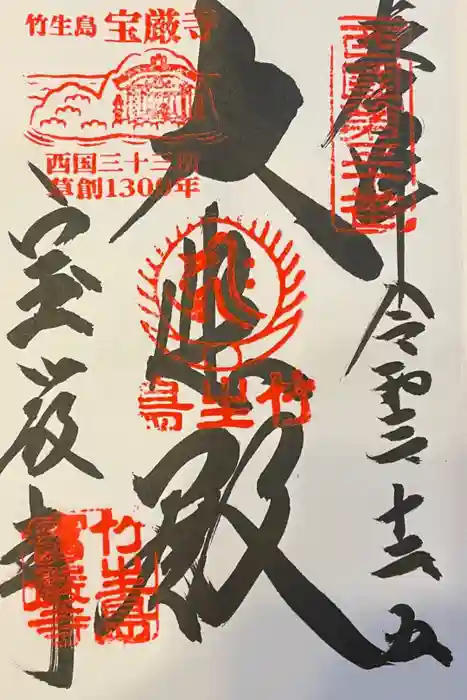 奉拝
西国第三十番
令和三十二五
大悲殿
竹生島
竹生島 宝厳寺
西国三十三所
草創1300年
宝厳寺
竹生島
宝厳寺